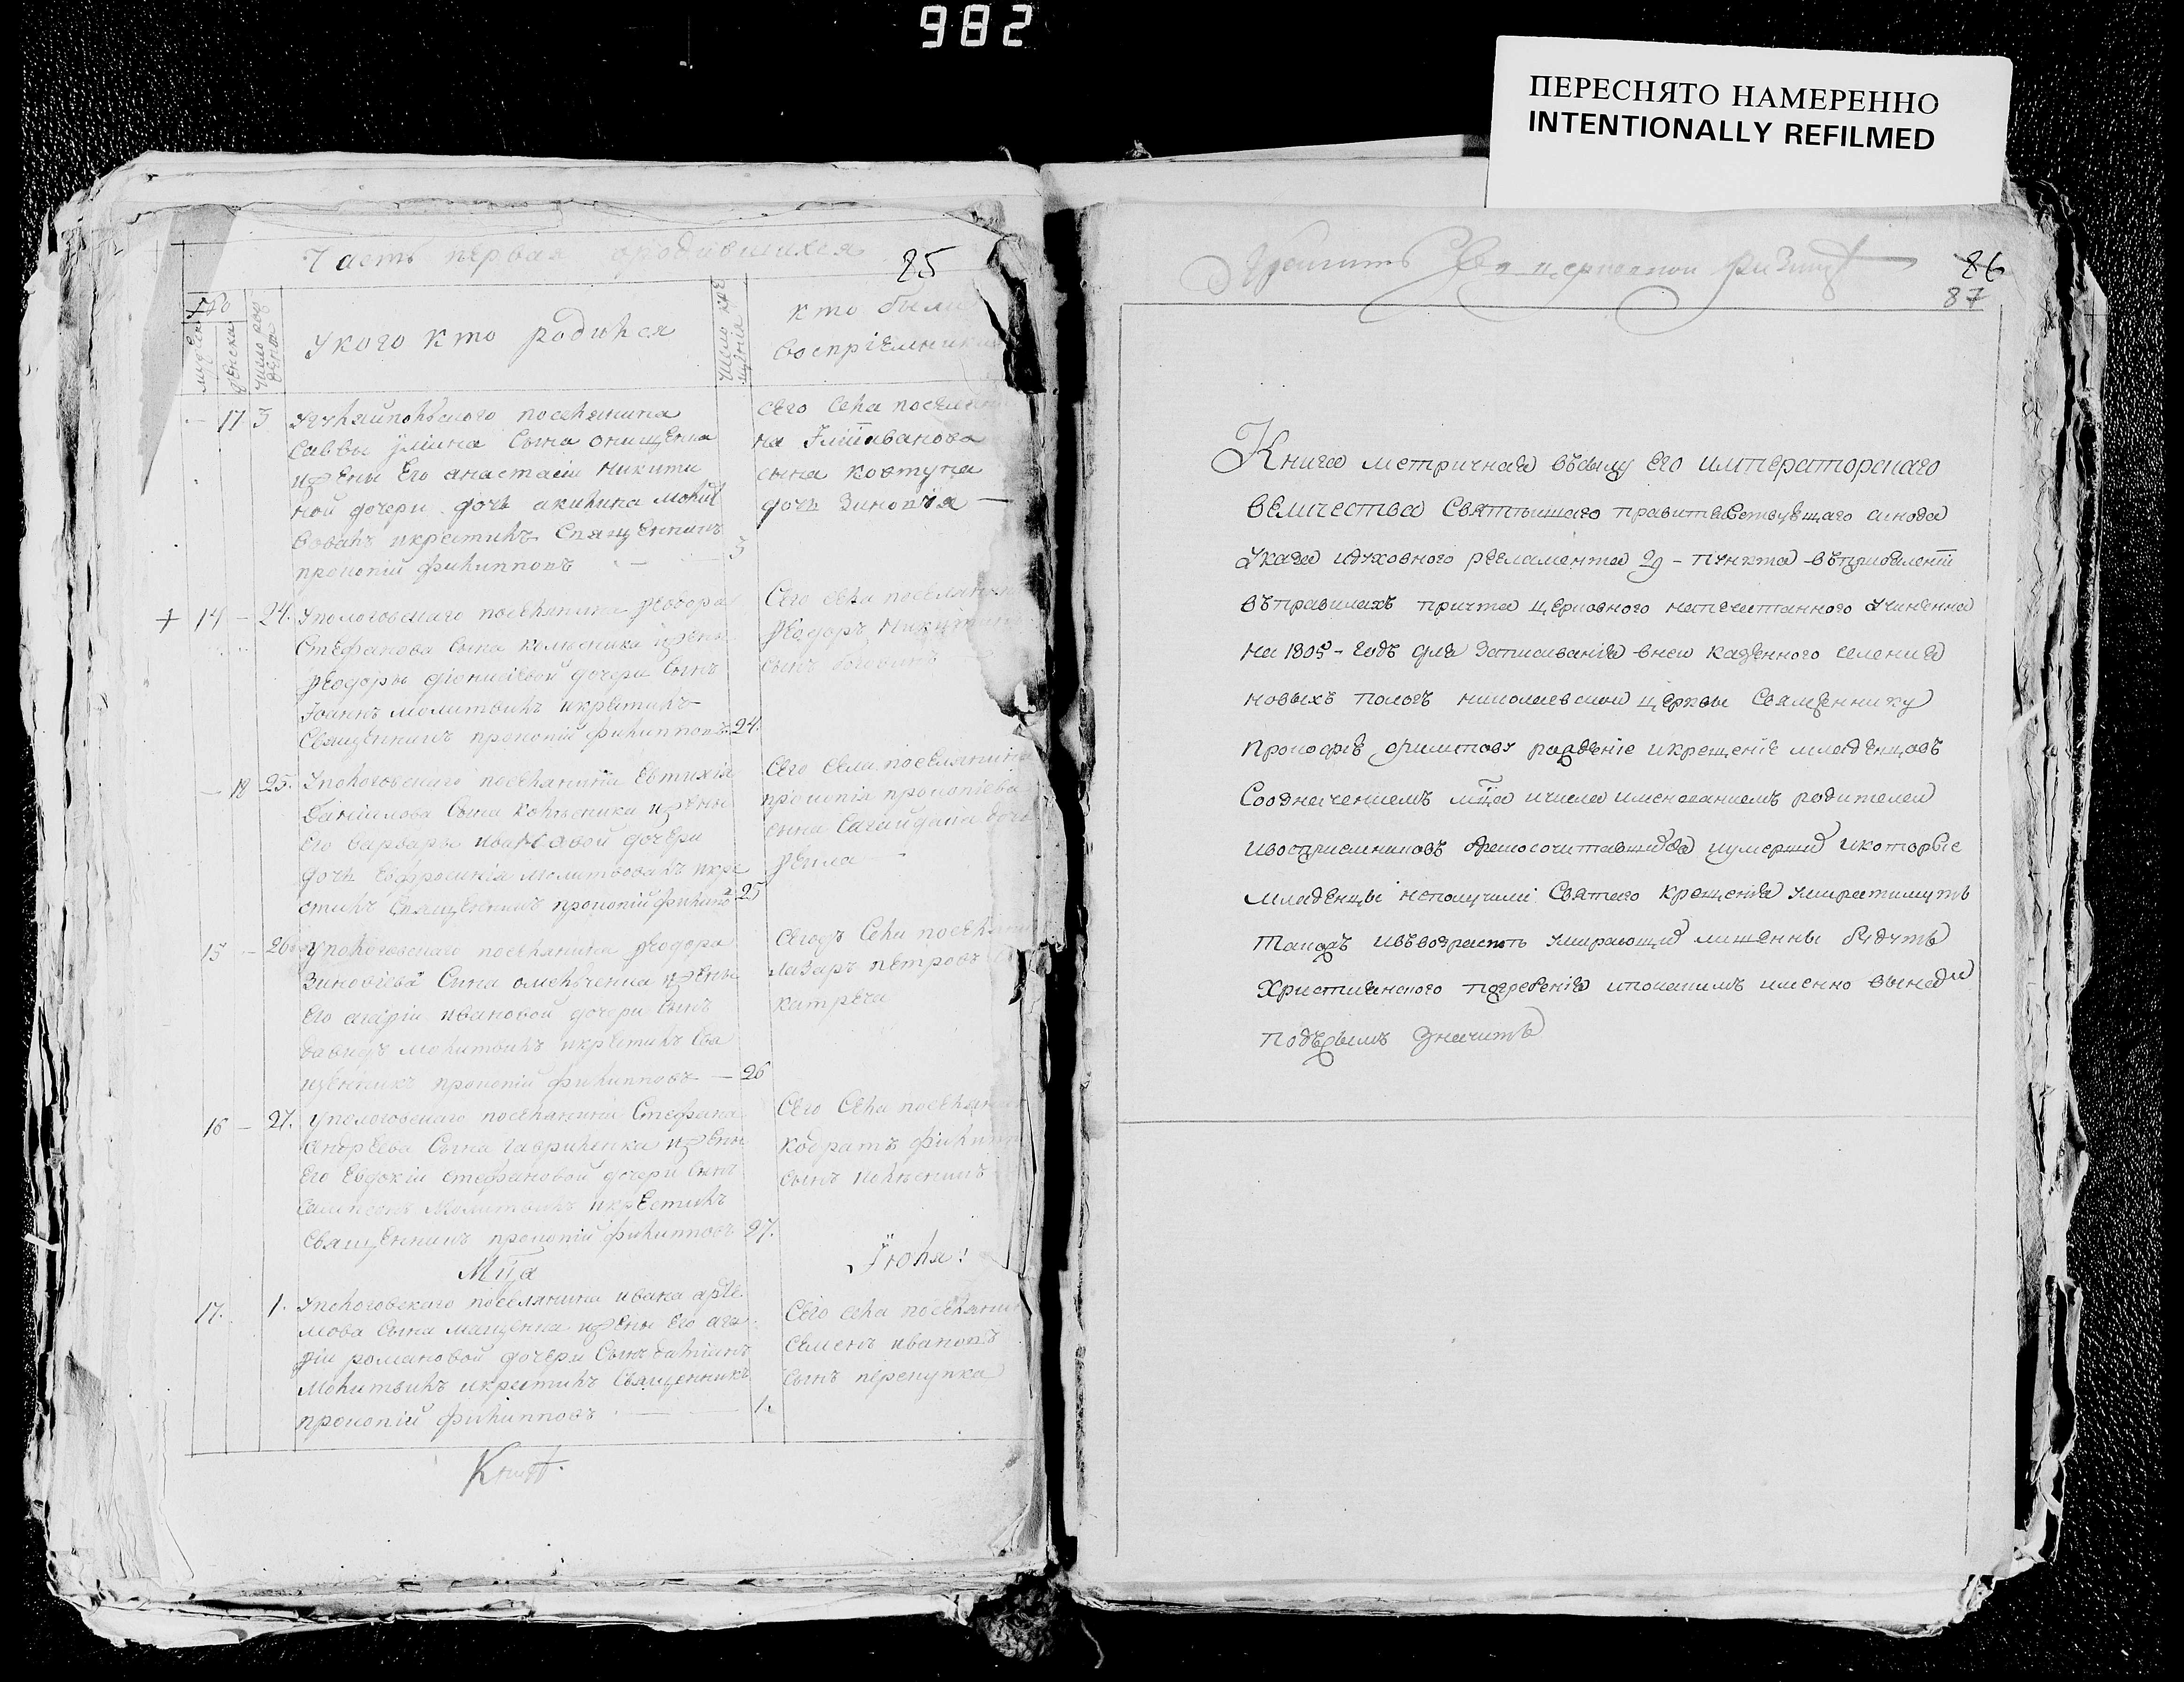 982
ПЕРЕСНЯТО НАМЕРЕННО
INTENTIONALLY REFILMED
Часть первая ородившихся
25
Число рож
дения
укого кто родился
кто были
воспрiемники
17 3
поселянина
Саввы сына онищенка
ижены его анастасiи никити
ной дочери дочь акилина молит
вовалъ икрестилъ Священникъ
прокопiй филипповъ 3
сего села поселяни
на Иванова
сына ковтуна
дочь Зиновiя
14 - 24. Упологовского поселянина Феодора
Стефанова сына колесника ижены
Феодоры дiонисiевой дочери сынъ
Iоаннъ молитвилъ икрестилъ
Священникъ прокопiй филипповъ 24.
Сего села поселянинъ
Феодоръ никитинъ
сынъ
- 18 25. Упологовского поселянина Евтихiя
данiилова сына колесника ижены
его варвары ивановой дочери
дочь Евфросинiя молитвовалъ икре
стилъ Священникъ прокопiй филип 25
Сего села поселянина
прокопiя прокопiева
сына Сагайдака дочь
Фекла
15 - 26 Упологовского поселянина Феодора
Зиновiева сына омельченка ижены
его марiи ивановой дочери сынъ
давидъ молитвилъ икрестилъ Свя
щенникъ прокопiй филипповъ 26
Сегожъ села поселянинъ
лазаръ петровъ
катреча
16 - 27. Упологовского поселянина Стефана
Андреева сына гавриленка ижены
его Евдокiи стефановой дочери сынъ
Сампсонъ молитвилъ икрестилъ
Священникъ прокопiй филипповъ 27.
Сего села поселянинъ
кодратъ филипповъ
сынъ
Мца Iюня:
17. 1. Упологовского поселянина ивана арте
мова сына маценка ижены его ага
фiи романовой дочери сынъ
молитвилъ икрестилъ Священникъ
прокопiй филипповъ 1.
Сего села поселянинъ
Семенъ ивановъ
сынъ перепучка
Хранить въ церковной ризницѣ
86
87
Книга метричная въсилу Его императорскаго
величества Святѣйшаго правительствующаго синода
Указа идуховного регламента 29 - пункта въприбавленiи
въправилахъ причта церковного напечатанного учиненна
на 1805 - годъ для записыванiя внею казенного селенiя
новыхъ пологъ николаевской церквы Священнику
прокофiю филипову рожденiе икрещенiе младенцовъ
Сообзначениемъ мца ичисла именованиемъ родителей
ивосприемниковъ бракосочитавшихся иумершихъ икоторые
младенцы неполучили Святаго крещенiя умиратимутъ
також ивъвозрастѣ умирающiе лишенны будутъ
Христианского погребенiя ипокакимъ именно винамъ
подъсимъ значитъ